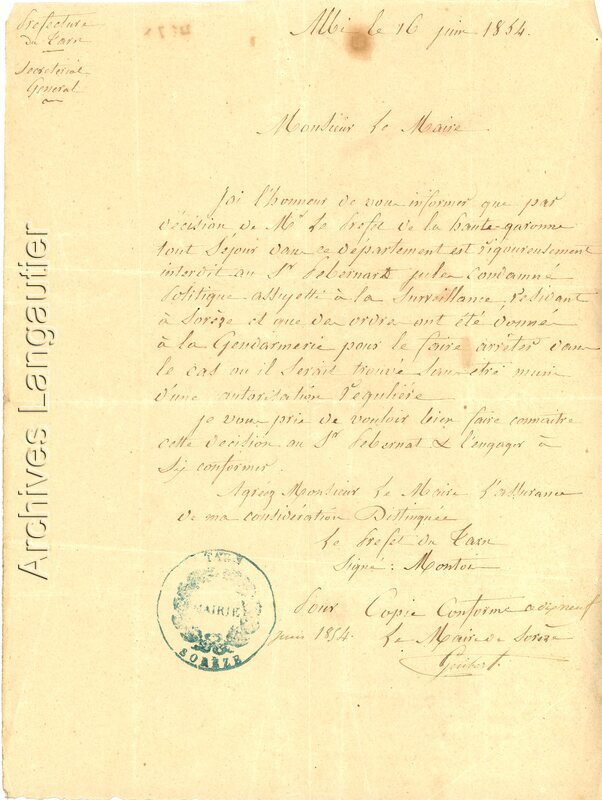 Prefecture
du Tarn
Secretariat
General
Albi le 16 juin 1854.
Monsieur Le Maire
J'ai l'honneur de vous informer que par
décision de Mr Le Prefet de la haute-garonne
tout Sejour dans ce département est rigoureusement
interdit au Sr Pebernard jules Condamné
Politique assujetti à la Surveillance, residant
à Sorèze et que des ordres ont été donnés
à la Gendarmerie pour le faire arrêter dans
le cas ou il Serait trouvé Sans être muni
d'une autorisation régulière
je vous prie de vouloir bien faire connaître
cette decision au Sr Pebernat & l'engager à
S'y conformer.
Agréez Monsieur Le Maire l'assurance
de ma considération Distinguée
Le Prefet du Tarn
Signé :
Pour Copie Conforme a dixneuf
juin 1854.
Le Maire de Sorèze
TARN
MAIRIE
SORÈZE
Archives Langautier